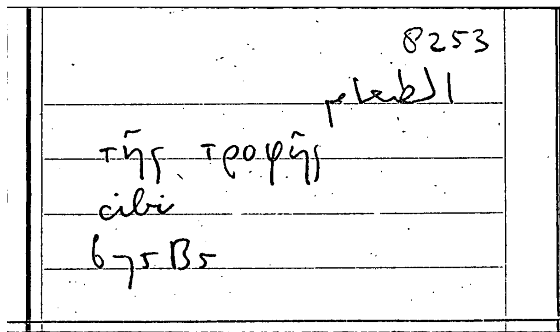 8253
الطعام
τῆς τροφῆς
cibi
675 B5